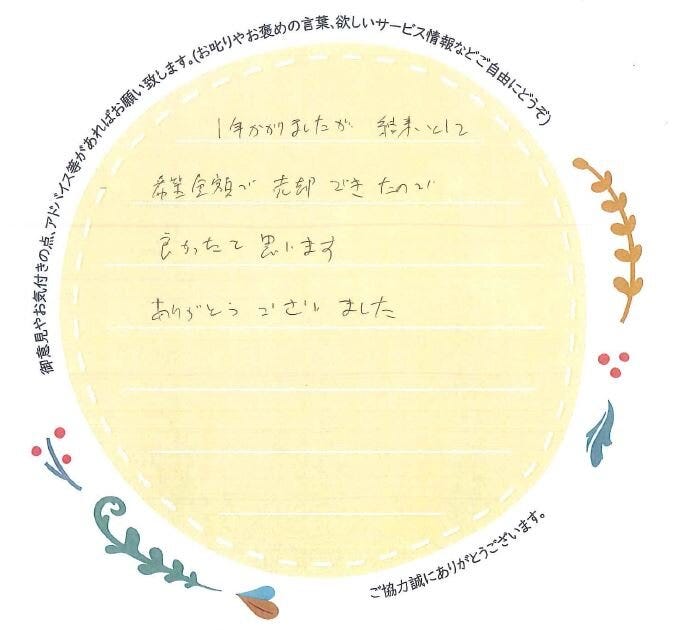 御意見やお気付きの点、アドバイス等があればお願い致します。(お叱りやお褒めの言葉、欲しいサービス情報などご自由にどうぞ)
1年かかりましたが 結果として
希望金額で 売却 できたので
良かったと 思います
ありがとう ございました
ご協力誠にありがとうございます。